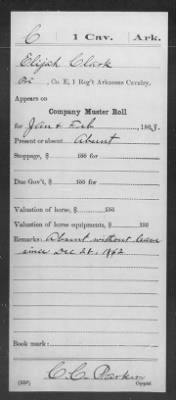 C 1 Cav. Ark.
Elijah Clark
Pvt, Co. E, 1 Reg't Arkansas Cavalry.
Appears on
Company Muster Roll
for Jan & Feb, 1863.
Present or absent Absent
Stoppage, $ 100 for
Due Gov't, $ 100 for
Valuation of horse, $ 100
Valuation of horse equipments, $ 100
Remarks: Absent without leave
since Dec 28, 1862
Book mark:
(358) C. C. Parker
Copyist.